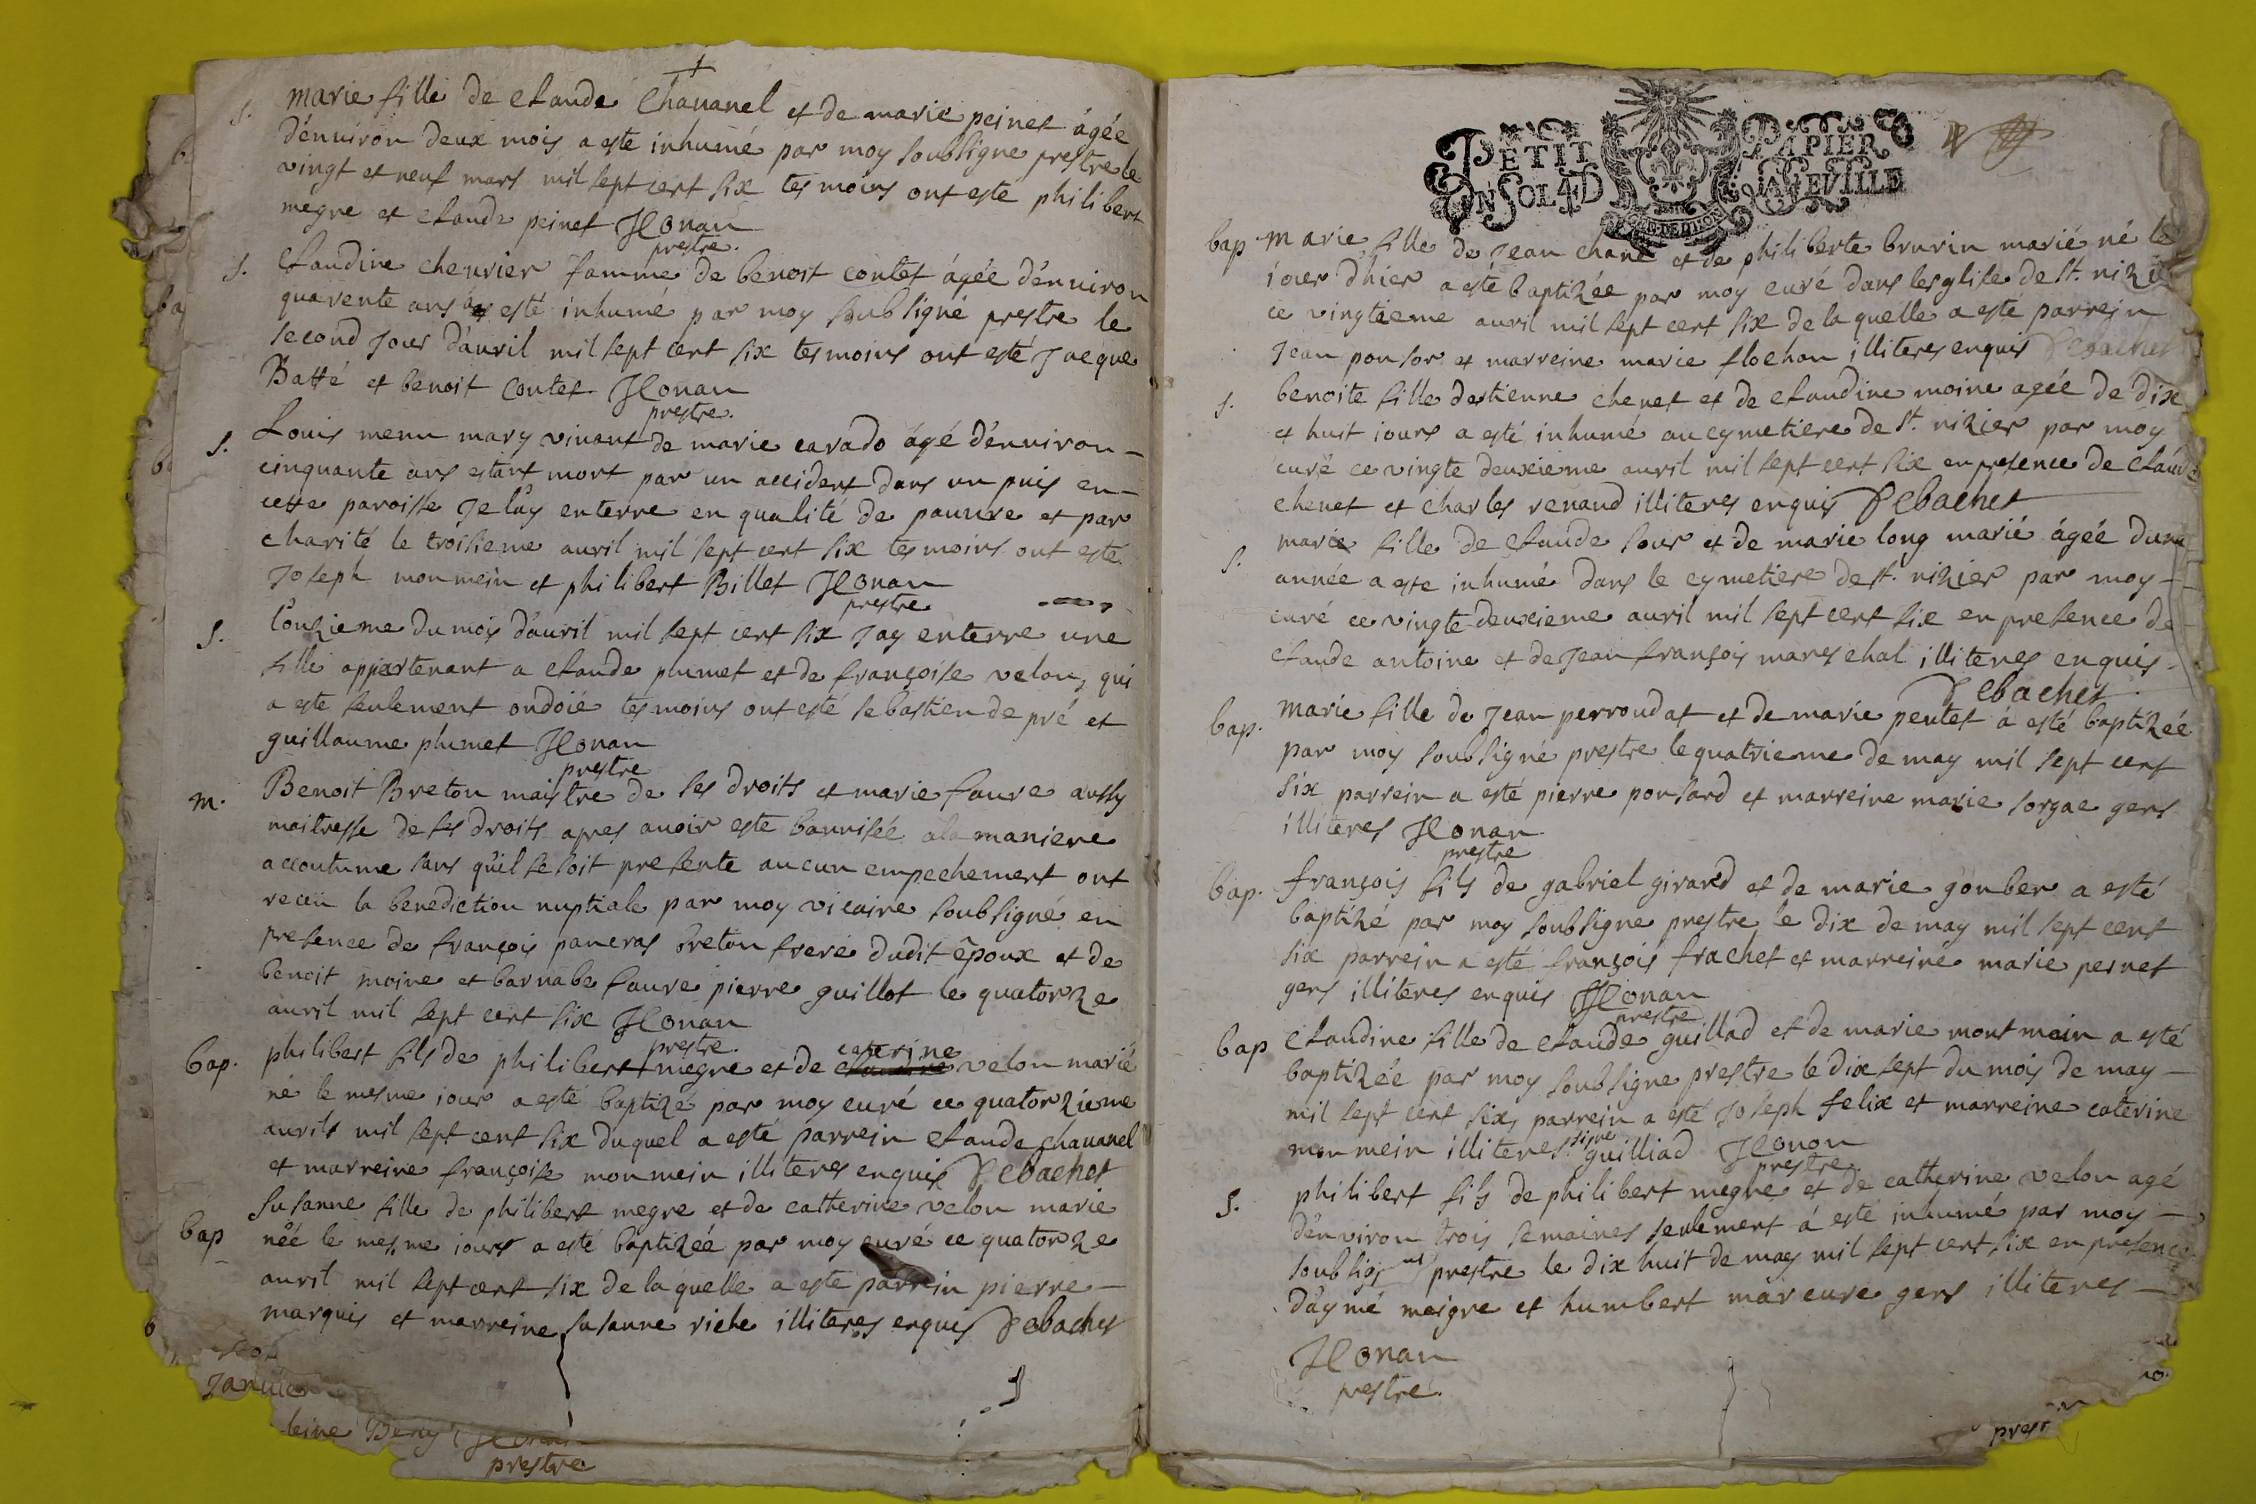 s. marie fille de claude chavanel et de marie peinet âgée
d'environ deux mois a esté inhumé par moy soubsigne prestre le
vingt et neuf mars mil sept cent six tesmoins ont esté philibert
megre et claude peinet Jlonan
prestre.
s. claudine chevrier famme de benoit contet âgée d'environ
quarente ans a esté inhumé par moy soubsigné prestre le
second jour d'avril mil sept cent six tesmoins ont esté jacque
Batté et benoit contet Jlonan
prestre.
s. Louis menu mary vivant de marie carado âgé d'environ
cinquante ans estant mort par un accident dans un puis en
cette paroisse je l'ay enterre en qualité de pauvre et par
charité le troisieme avril mil sept cent six tesmoins ont esté
joseph monmein et philibert Billet Jlonan
prestre
s. l'onzieme du mois d'avril mil sept cent six j'ay enterre une
fille appartenant a claude plumet et de françoise velon, qui
a este seulement ondoié tesmoins ont esté sebastien de pré et
guillaume plumet Jlonan
prestre
m. Benoit Breton maistre de ses droits et marie faure aussy
maitresse de ses droits apres avoir este bannisée a la maniere
accoutume sans qu'il se soit presente aucun empechement ont
receu la benediction nuptiale par moy vicaire soubsigné en
presence de françois pancras breton frere dudit époux et de
benoit moine et barnabe faure pierre guillot le quatorze
avril mil sept cent six Jlonan
prestre.
bap. philibert fils de philibert megre et de caterine velon marié
né le mesme jour a esté baptizé par moy curé ce quatorzieme
avril mil sept cent six duquel a esté parrein claude chavanel
et marreine françoise monmein illiteres enquis Debachet
bap susanne fille de philibert megre et de catherine velon marie
née le mesme jour a esté baptizée par moy curé ce quatorze
avril mil sept cent six de laquelle a este parrein pierre
marquis et marreine susanne riche illiteres enquis Debachet
janvier
prestre
PETIT PAPIER
UN SOL 4 D LA FEVILLE
bap marie fille de jean chane et de philiberte brurin marié né le
jour d'hier a esté baptizée par moy curé dans lesglise de st. nizie
ce vingtieme avril mil sept cent six de laquelle a esté parrein
jean ponsor et marreine marie flochon illiteres enquis Debachet
s. benoite fille destienne chenet et de claudine moine agée de dix
et huit jours a esté inhumé au cymetiere de st. nizier par moy
curé ce vingte deuxieme avril mil sept cent six en presence de claude
chenet et charles renaud illiteres enquis Debachet
s. marie fille de claude sour et de marie long marié âgée dune
année a este inhumé dans le cymetiere de st. nizier par moy
curé ce vingte deuxieme avril mil sept cent six en presence de
claude antoine et de jean françois mareschal illiteres enquis
Debachet
bap. marie fille de jean perroudat et de marie peutet à esté baptizée
par moy soubsigné prestre le quatrieme de may mil sept cent
six parrein a esté pierre ponsard et marreine marie sorgae gens
illiteres Jlonan
prestre
bap. françois fils de gabriel girard et de marie gonber a esté
baptizé par moy soubsigne prestre le dix de may mil sept cent
six parrein a esté françois frachet et marreine marie pernet
gens illiteres enquis Jlonan
prestre
bap claudine fille de claude guillad et de marie montmain a esté
baptizée par moy soubsigne prestre le dix sept du mois de may
mil sept cent six, parrein a esté joseph felix et marreine caterine
monmein illiteres signe guilliad Jlonan
prestre
s. philibert fils de philibert megre et de catherine velon agé
d'environ trois semaines seulement à esté inhumé par moy
soubsigné prestre le dix huit de may mil sept cent six en presence
d'aymé meigre et humbert mareure gens illiteres
Jlonan
prestre.